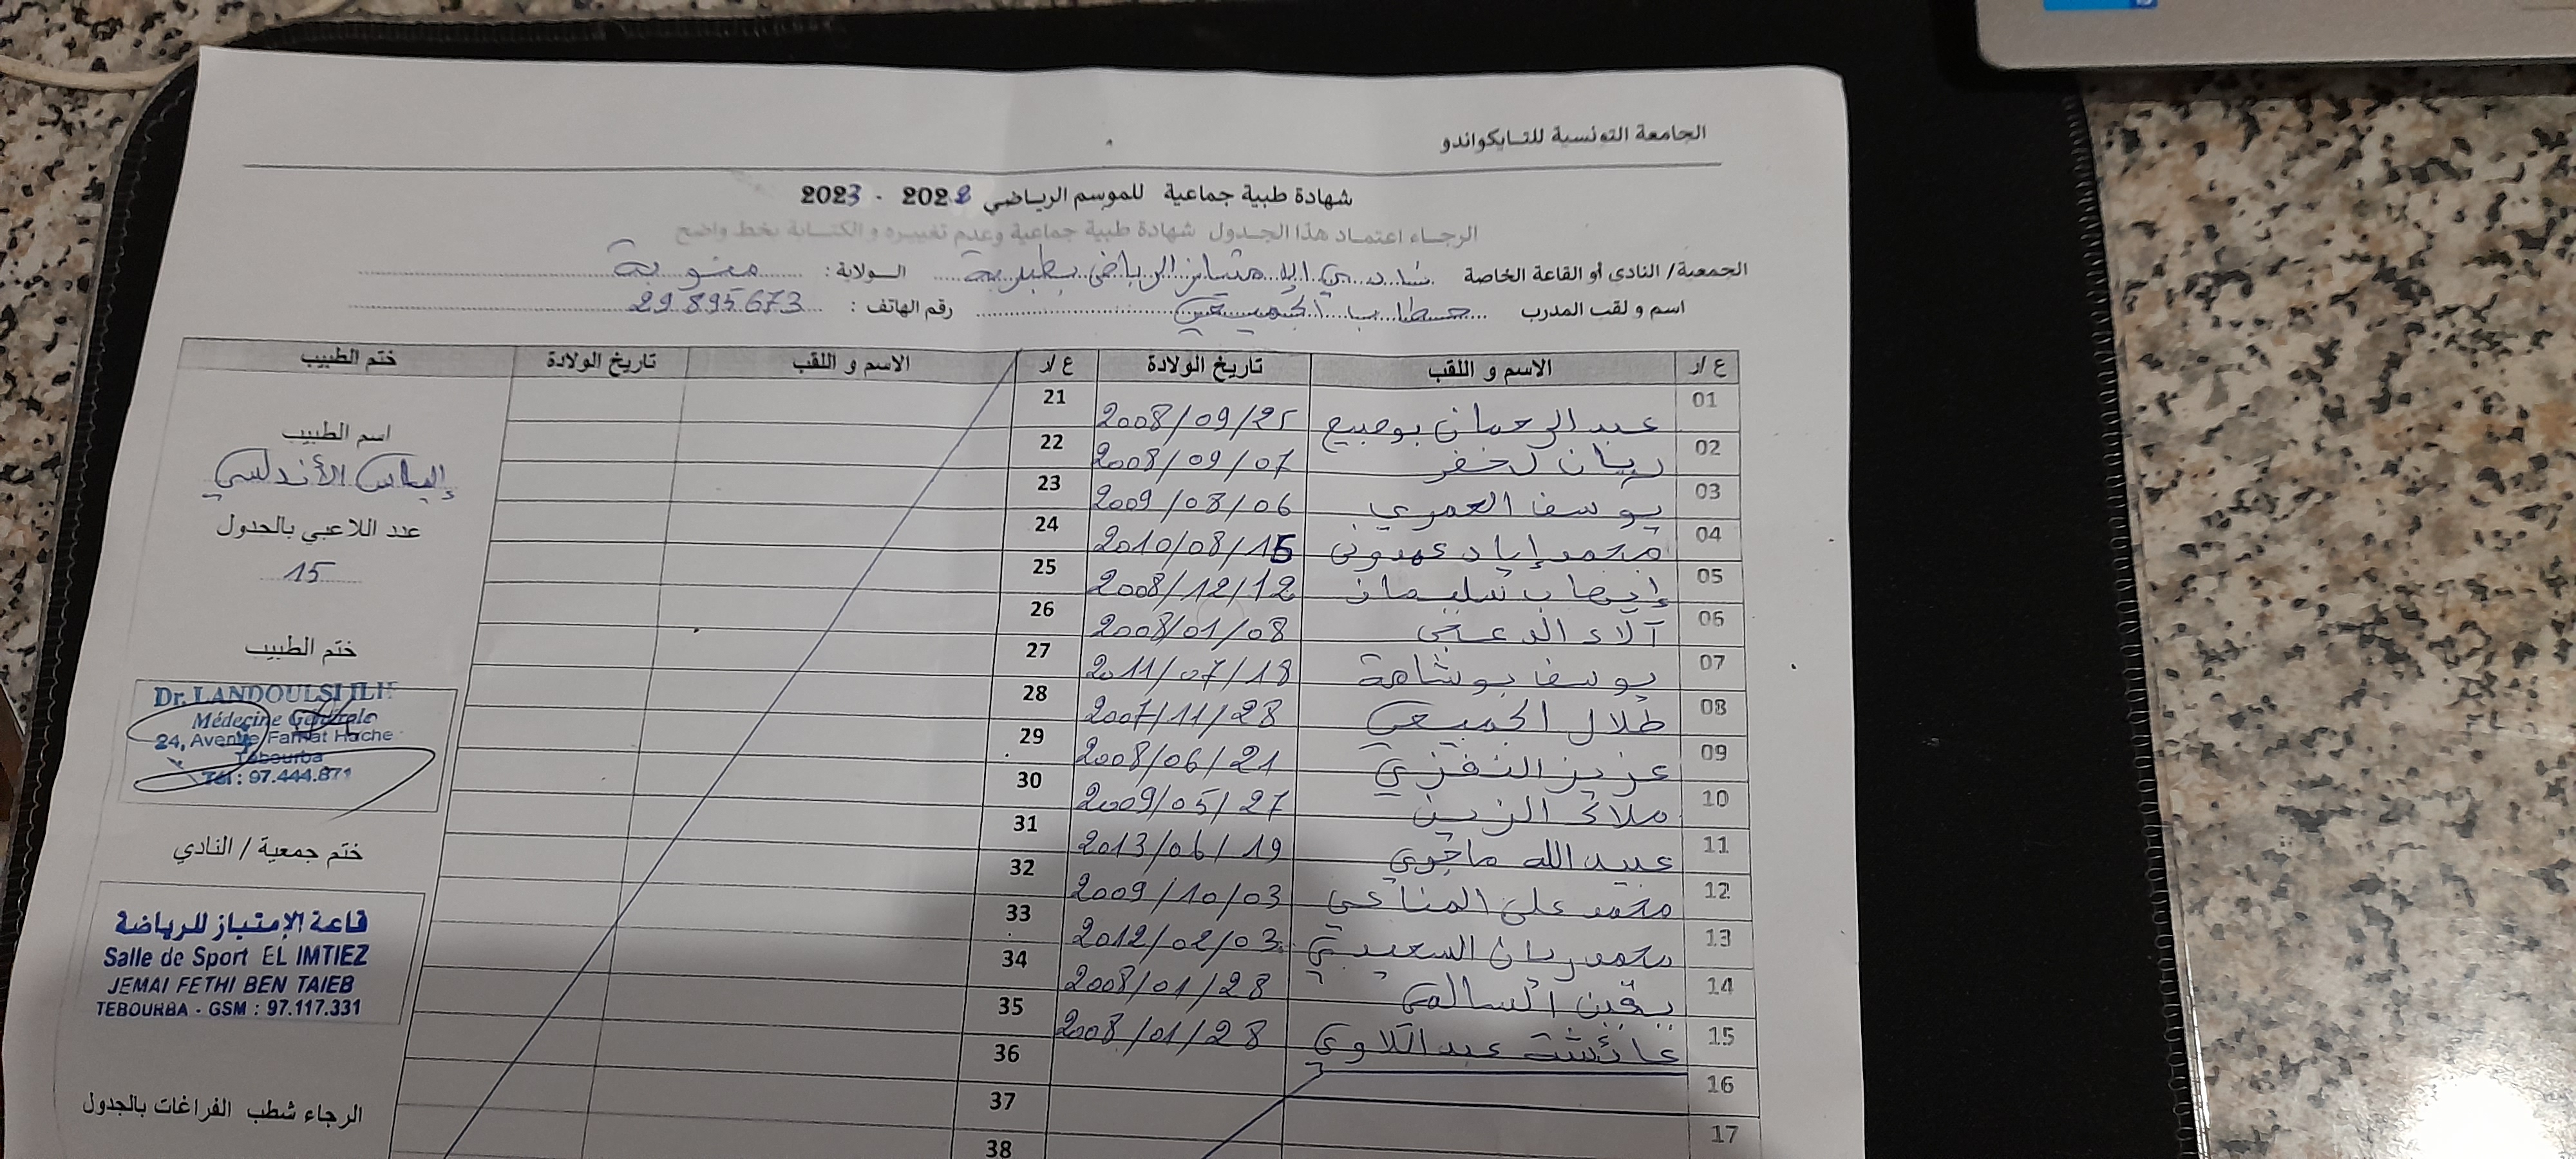 الجامعة التونسية للتايكواندو
شهادة طبية جماعية للموسم الرياضي 2022 - 2023
الرجاء اعتماد هذا الجدول شهادة طبية جماعية وعدم تغييره و الكتابة بخط واضح
الجمعية/ النادي أو القاعة الخاصة نادي الامتياز الرياضي بطبربة الولاية: منوبة
اسم و لقب المدرب حطاب الجميعي رقم الهاتف: 29.895.673
ع/ر الاسم و اللقب تاريخ الولادة ع/ر الاسم و اللقب تاريخ الولادة ختم الطبيب
01 عبد الرحمان بوصبيع 2008/09/25 21
02 ريان لخضر 2008/09/07 22
03 يوسف العمري 2009/08/06 23
04 محمد إياد عمدوني 2010/08/15 24
05 إيهاب سليمان 2008/12/12 25
06 آلاء الدعجي 2008/01/08 26
07 يوسف بوشاهة 2011/07/18 27
08 طلال الجميعي 2007/11/28 28
09 عزيز النفزي 2008/06/21 29
10 ملاك الزين 2009/05/27 30
11 عبيد الله ماجوي 2013/06/19 31
12 محمد علي المناعي 2009/10/03 32
13 محمد ريان السعيدي 2012/02/03 33
14 يقين السالمي 2008/01/28 34
15 عائشة عبد اللاوي 2008/01/28 35
16 36
17 37
38
اسم الطبيب
إلياس الأندلسي
عدد اللاعبي بالجدول
15
ختم الطبيب
Dr. LANDOULSI ILIF
Médecine Générale
24, Avenue Farhat Hache
Tebourba
Tél : 97.444.871
ختم جمعية / النادي
قاعة الإمتياز للرياضة
Salle de Sport EL IMTIEZ
JEMAI FETHI BEN TAIEB
TEBOURBA - GSM : 97.117.331
الرجاء شطب الفراغات بالجدول